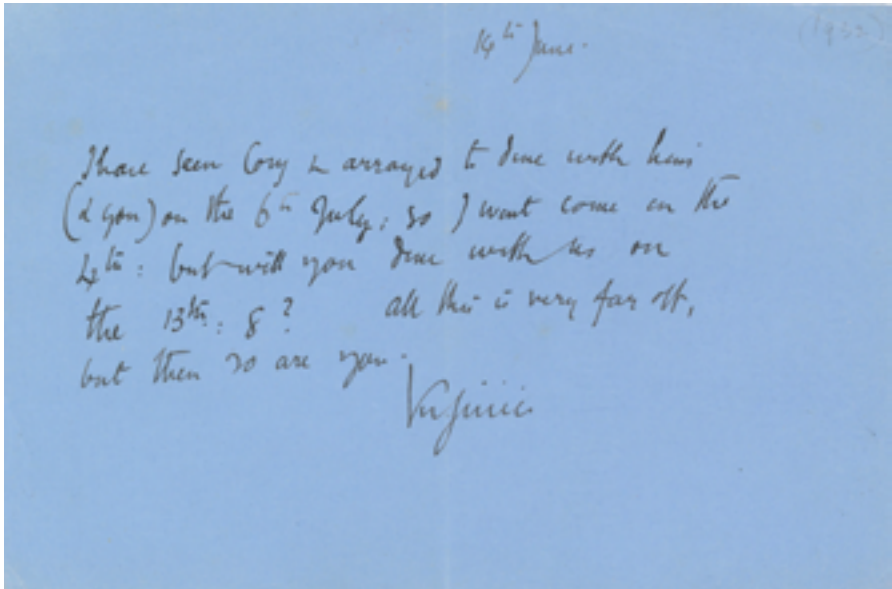 (1932)
14th June.
I have seen Cory & arranged to dine with him
(& you) on the 6th July: so I wont come in the
4th: but will you dine with us on
the 13th: 8? all this is very far off,
but then so are you.
Virginia